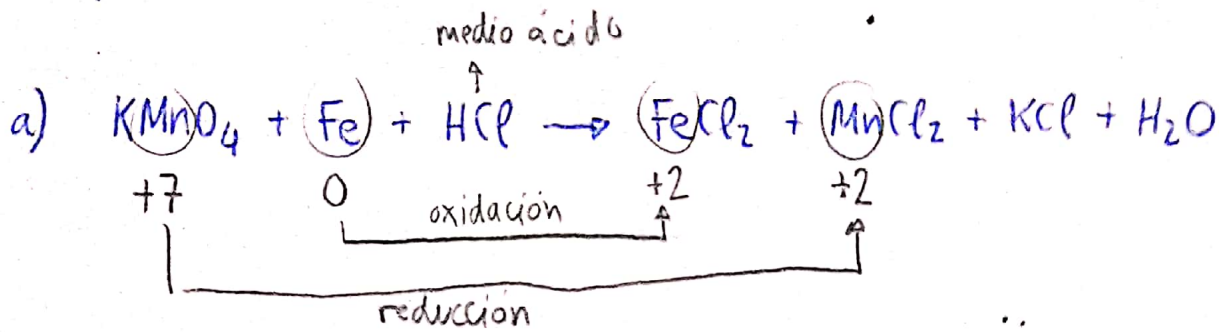 medio ácido
a) KMnO₄ + Fe + HCl → FeCl₂ + MnCl₂ + KCl + H₂O
+7 0 +2 +2
oxidación
reducción